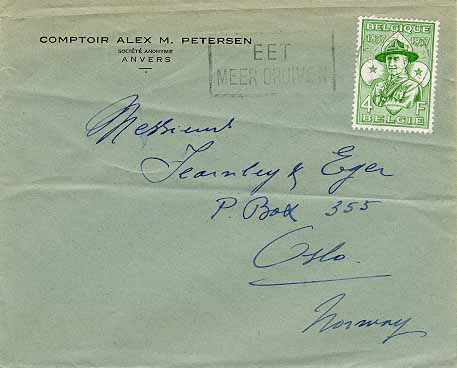 COMPTOIR ALEX M. PETERSEN
SOCIÉTÉ ANONYME
ANVERS
EET
MEER DRUIVEN
BELGIQUE
1857 1957
4 F
BELGIE
Messieurs
Fearnley & Eger
P. Box 355
Oslo.
Norway